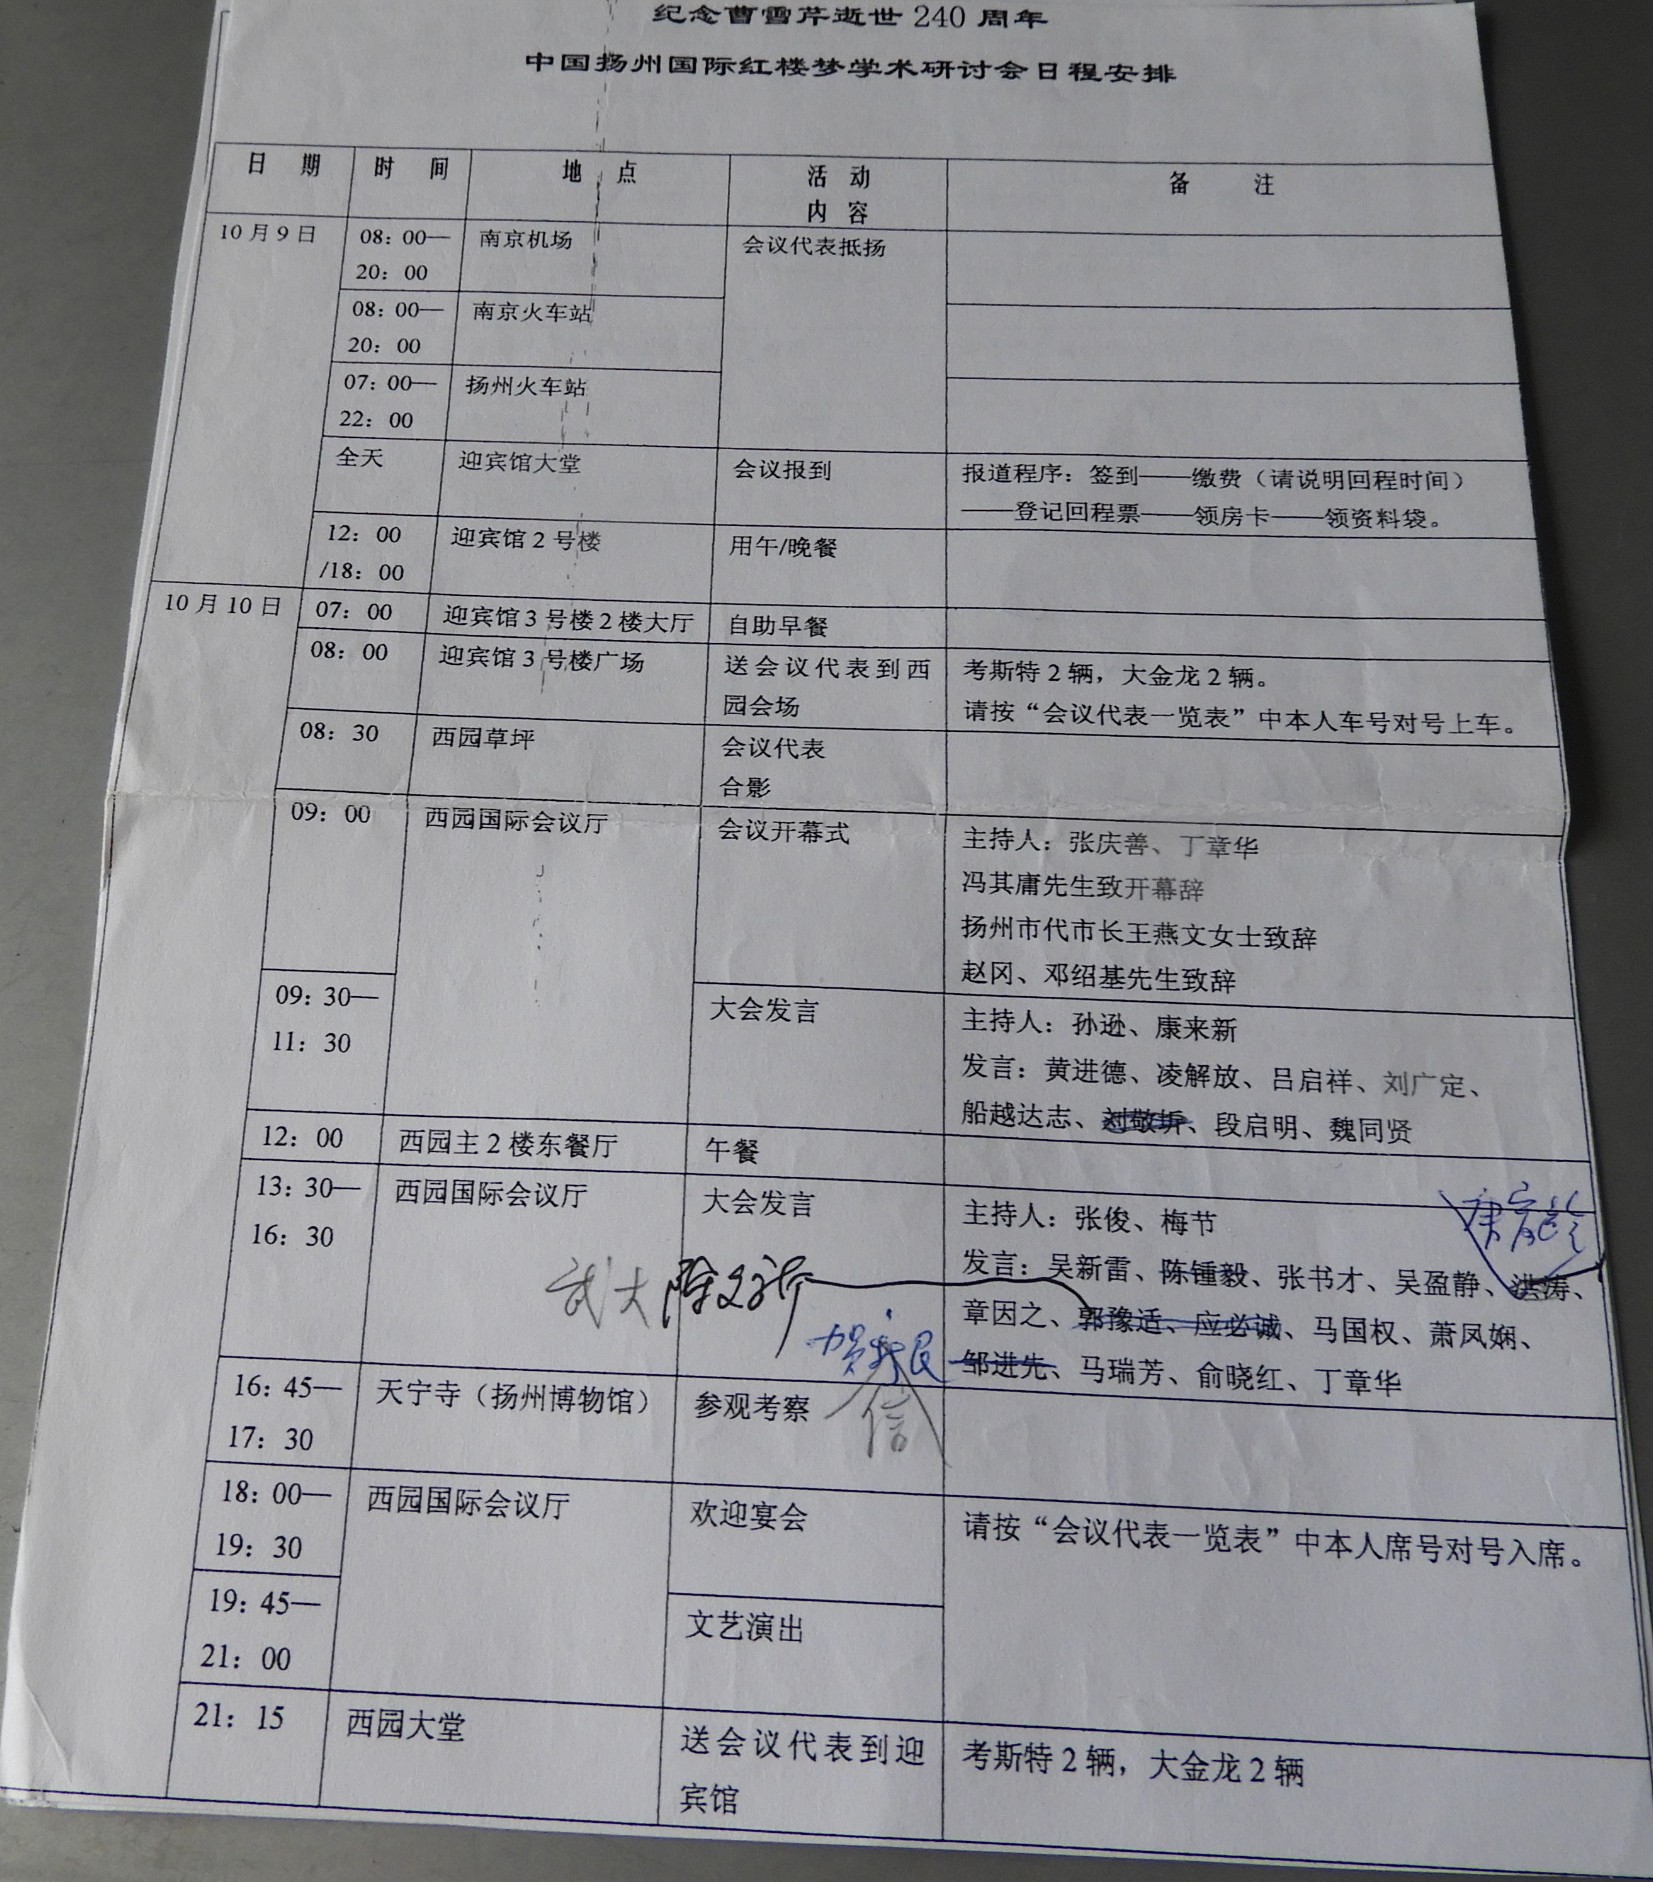 纪念曹雪芹逝世 240 周年
中国扬州国际红楼梦学术研讨会日程安排
日 期 时 间 地 点 活 动 备 注
内 容
10 月 9 日 08：00— 南京机场 会议代表抵扬
20：00
08：00— 南京火车站
20：00
07：00— 扬州火车站
22：00
全天 迎宾馆大堂 会议报到 报道程序：签到——缴费（请说明回程时间）
——登记回程票——领房卡——领资料袋。
12：00 迎宾馆 2 号楼 用午/晚餐
/18：00
10 月 10 日 07：00 迎宾馆 3 号楼 2 楼大厅 自助早餐
08：00 迎宾馆 3 号楼广场 送会议代表到西 考斯特 2 辆，大金龙 2 辆。
园会场 请按“会议代表一览表”中本人车号对号上车。
08：30 西园草坪 会议代表
合影
09：00 西园国际会议厅 会议开幕式 主持人：张庆善、丁章华
冯其庸先生致开幕辞
扬州市代市长王燕文女士致辞
赵冈、邓绍基先生致辞
09：30— 大会发言 主持人：孙逊、康来新
11：30 发言：黄进德、凌解放、吕启祥、刘广定、
船越达志、刘敬圻、段启明、魏同贤
12：00 西园主 2 楼东餐厅 午餐
13：30— 西园国际会议厅 大会发言 主持人：张俊、梅节
16：30 发言：吴新雷、陈锺毅、张书才、吴盈静、洪涛、
武大 陈文新
章因之、郭豫适、应必诚、马国权、萧凤娴、
贺信民
邹进先、马瑞芳、俞晓红、丁章华
信
16：45— 天宁寺（扬州博物馆） 参观考察
17：30
18：00— 西园国际会议厅 欢迎宴会 请按“会议代表一览表”中本人席号对号入席。
19：30
19：45— 文艺演出
21：00
21：15 西园大堂 送会议代表到迎 考斯特 2 辆，大金龙 2 辆
宾馆